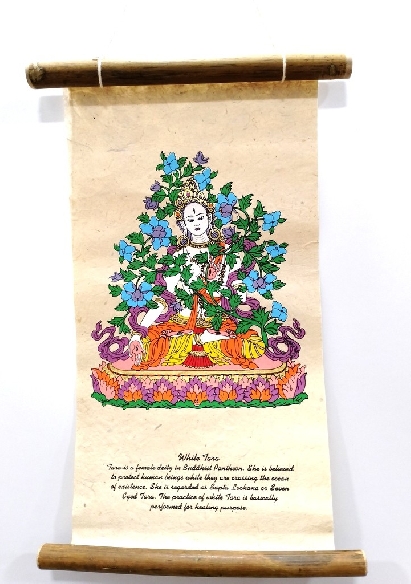 White Tara
Tara is a female deity in Buddhist Pantheon. She is believed
to protect human beings while they are crossing the ocean
of existence. She is regarded as Sapta Lochana or Seven
Eyed Tara. The practice of white Tara is basically
performed for healing purpose.